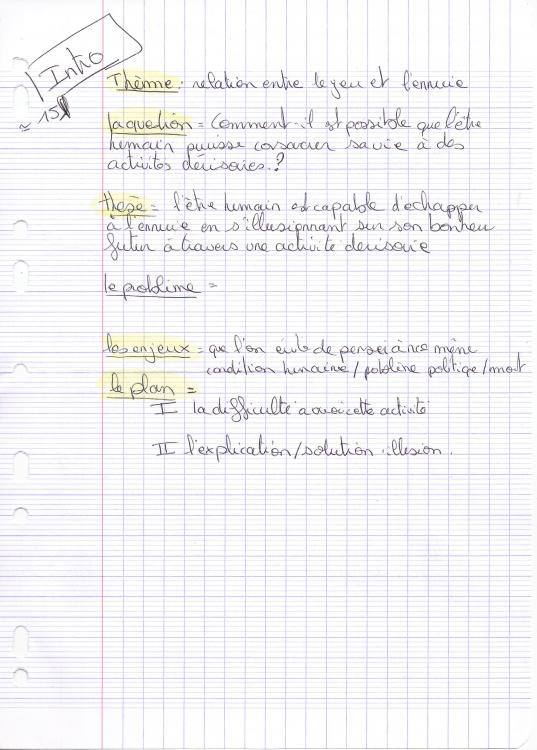 Intro
≈ 15
Thème : relation entre le jeu et l'ennuie
la quetion = Comment-il est possible que l'être
humain puisse consacrer sa vie à des
activités dérisoires ?
thesè = l'être humain est capable d'échapper
à l'ennuie en s'illusionnant sur son bonheur
futur à travers une activité derisoire
le problème =
les enjeux = que l'on évite de penser à nce même
condition humaine / problème politique / mort
le plan =
I la difficulté a avoir cette activité
II l'explication / solution : illusion.